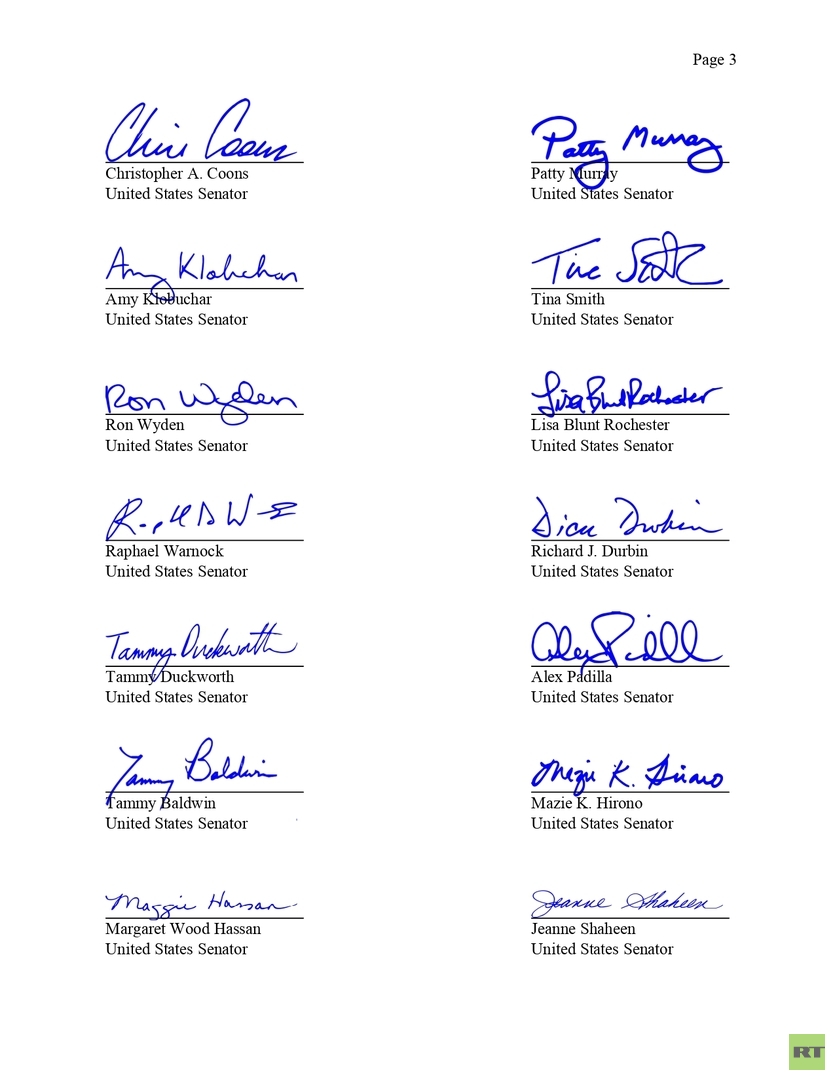 Page 3
Chris Coons
Christopher A. Coons
United States Senator
Patty Murray
Patty Murray
United States Senator
Amy Klobuchar
Amy Klobuchar
United States Senator
Tina Smith
United States Senator
Ron Wyden
Ron Wyden
United States Senator
Lisa Blunt Rochester
Lisa Blunt Rochester
United States Senator
Raphael Warnock
United States Senator
Dick Durbin
Richard J. Durbin
United States Senator
Tammy Duckworth
Tammy Duckworth
United States Senator
Alex Padilla
Alex Padilla
United States Senator
Tammy Baldwin
Tammy Baldwin
United States Senator
Mazie K. Hirono
Mazie K. Hirono
United States Senator
Maggie Hassan
Margaret Wood Hassan
United States Senator
Jeanne Shaheen
Jeanne Shaheen
United States Senator
RT